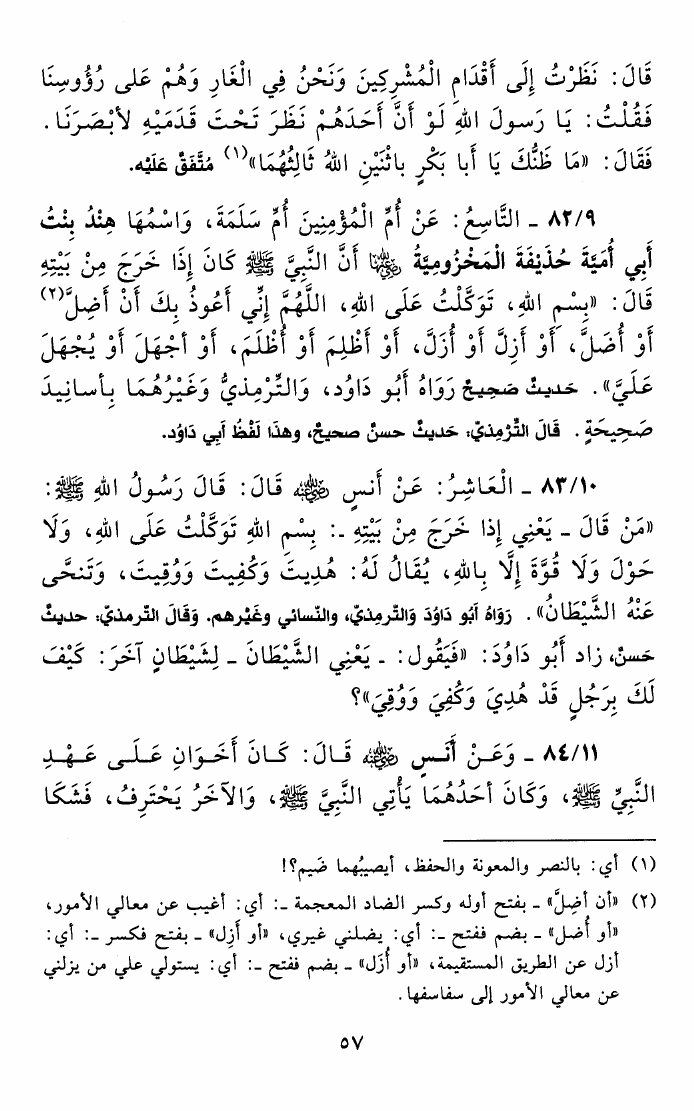 قَالَ: نَظَرْتُ إِلَى أَقْدَامِ الْمُشْرِكِينَ وَنَحْنُ فِي الْغَارِ وَهُمْ عَلى رُؤُوسِنَا
فَقُلْتُ: يَا رَسولَ اللهِ لَوْ أَنَّ أَحَدَهُمْ نَظَرَ تَحْتَ قَدَمَيْهِ لأَبْصَرَنَا.
فَقَالَ: «مَا ظَنُّكَ يَا أَبا بَكْرٍ باثْنَيْنِ اللهُ ثَالِثُهُمَا»(١) مُتَّفَقٌ عَلَيْه.
٨٢/٩ ـ التَّاسِعُ: عَنْ أُمِّ الْمُؤْمِنِينَ أُمِّ سَلَمَةَ، وَاسْمُهَا هِنْدُ بِنْتُ
أَبِي أُمَيَّةَ حُذَيفَةَ الْمَخْزُومِيَّةُ رضي الله عنها أَنَّ النَّبِيَّ ﷺ كَانَ إِذَا خَرَجَ مِنْ بَيْتِهِ
قَالَ: «بِسْمِ اللهِ، تَوَكَّلْتُ عَلَى اللهِ، اللَّهُمَّ إِنِّي أَعُوذُ بِكَ أَنْ أَضِلَّ(٢)
أَوْ أُضَلَّ، أَوْ أَزِلَّ أَوْ أُزَلَّ، أَوْ أَظْلِمَ أَوْ أُظْلَمَ، أَوْ أَجْهَلَ أَوْ يُجْهَلَ
عَلَيَّ». حَديثٌ صَحِيحٌ رَوَاهُ أَبُو دَاوُد، وَالتِّرْمِذيُّ وَغَيْرُهُمَا بِأَسانِيدَ
صَحِيحَةٍ. قَالَ التِّرْمِذيّ: حَديثٌ حسنٌ صحيحٌ، وهذَا لَفْظُ أبِي دَاوُد.
٨٣/١٠ ـ الْعَاشِرُ: عَنْ أَنسٍ رضي الله عنه قَالَ: قَالَ رَسُولُ اللهِ ﷺ:
«مَنْ قَالَ ـ يَعْنِي إِذا خَرَجَ مِنْ بَيْتِهِ ـ: بِسْمِ اللهِ تَوَكَّلْتُ عَلَى اللهِ، وَلَا
حَوْلَ وَلَا قُوَّةَ إِلَّا بِاللهِ، يُقَالُ لَهُ: هُدِيتَ وَكُفِيتَ وَوُقِيتَ، وَتَنحَّى
عَنْهُ الشَّيْطَانُ». رَوَاهُ أبُو دَاوُدَ وَالتِّرمِذيّ، والنّسائي وغَيْرهم. وَقَالَ التّرمذيّ: حديثٌ
حَسنٌ، زاد أَبُو دَاوُدَ: «فَيَقُول: ـ يَعْنِي الشَّيْطَانَ ـ لِشَيْطَانٍ آخَرَ: كَيْفَ
لَكَ بِرَجُلٍ قَدْ هُدِيَ وَكُفِيَ وَوُقِيَ»؟
٨٤/١١ ـ وَعَنْ أَنَسٍ رضي الله عنه قَالَ: كَانَ أَخَوَانِ عَلَى عَهْدِ
النَّبِيِّ ﷺ، وَكَانَ أَحَدُهُمَا يَأْتِي النَّبِيَّ ﷺ، وَالآخَرُ يَحْتَرِفُ، فَشَكَا
(١) أي: بالنصر والمعونة والحفظ، أيصيبُهما ضَيم؟!
(٢) «أن أضِلَّ» ـ بفتح أوله وكسر الضاد المعجمة ـ: أي: أغيب عن معالي الأمور،
«أو أُضل» ـ بضم ففتح ـ: أي: يضلني غيري، «أو أَزِل» ـ بفتح فكسر ـ: أي:
أزل عن الطريق المستقيمة، «أو أُزَل» ـ بضم ففتح ـ: أي: يستولي علي من يزلني
عن معالي الأمور إلى سفاسفها.
٥٧